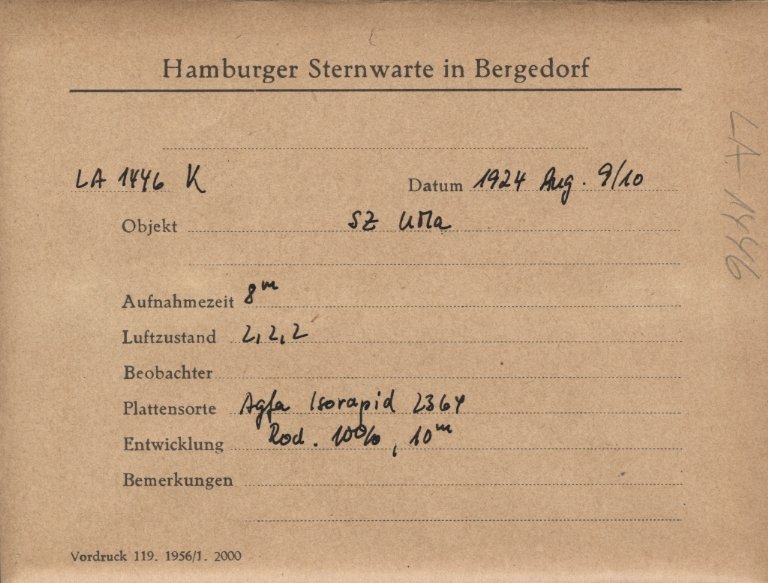 Hamburger Sternwarte in Bergedorf
LA 1446 K Datum 1924 Aug. 9/10
Objekt SZ UMa
Aufnahmezeit 8m
Luftzustand 2, 2, 2
Beobachter
Plattensorte Agfa Isorapid 2364
Entwicklung Rod. 10%, 10m
Bemerkungen
Vordruck 119. 1956/1. 2000
LA 1446